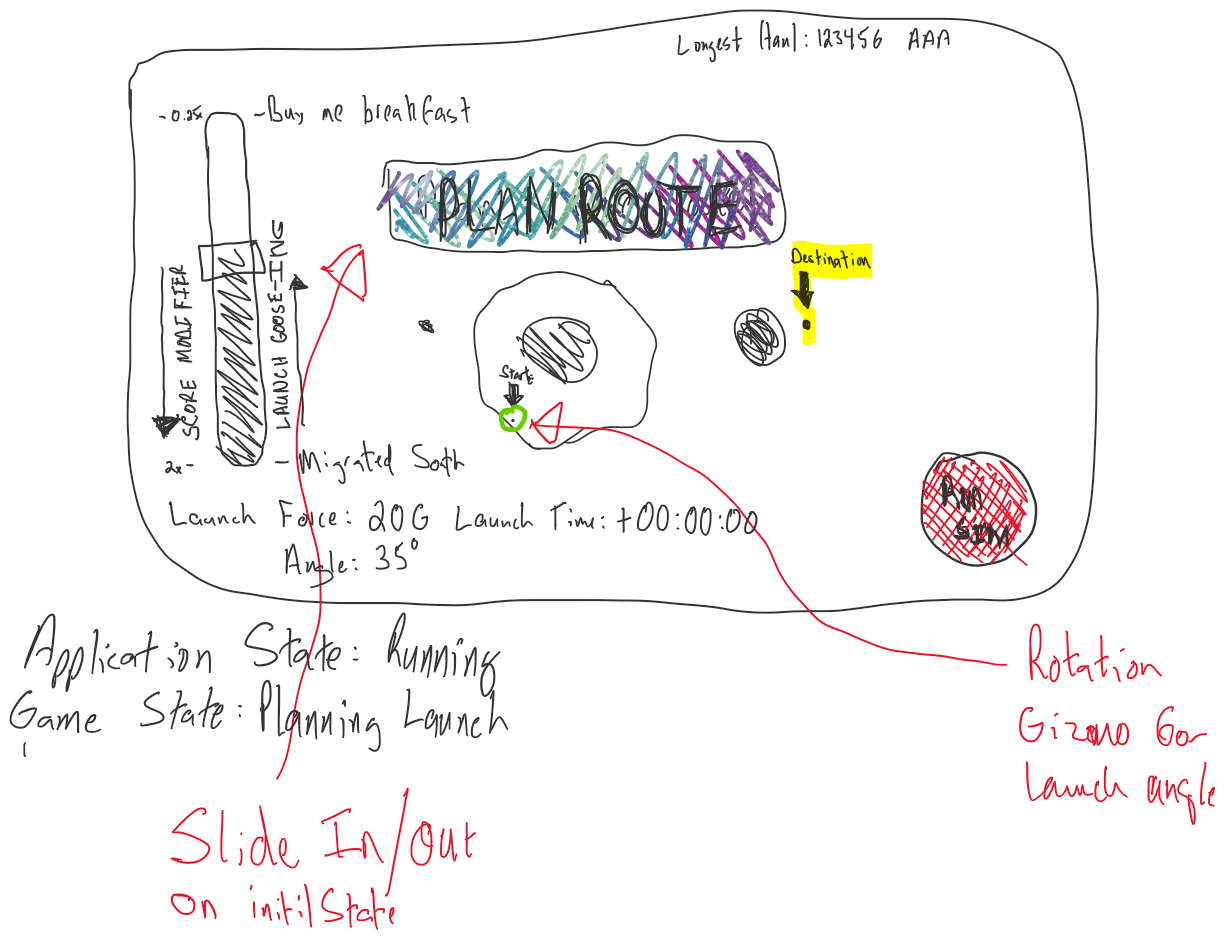 Longest : 123456 AAA
-0.25x
~Buy me breakfast
PLAN ROUTE
Destination
SCORE MODIFIER
LAUNCH GOOSE-ING
Start
2x-
- Migrated
Launch Force: 20G Launch Time: +00:00:00
Angle: 35°
RUN
SIM
Application State: Running
Game State: Planning Launch
Rotation
Gizmo for
Launch angle
Slide In/Out
on State